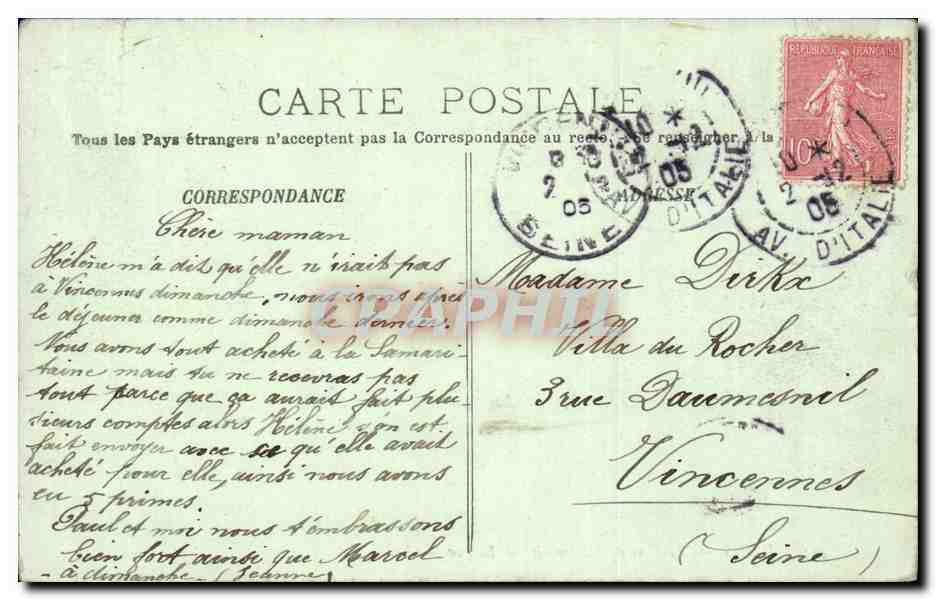 RÉPUBLIQUE FRANÇAISE
10
CARTE POSTALE
Tous les Pays étrangers n'acceptent pas la Correspondance au recto. Se renseigner à la
CORRESPONDANCE
ADRESSE
SEINE
05
05
D'ITALIE
05
AV. D'ITALIE
CPAPHIL
Chère maman
Hélène m'a dit qu'elle n'irait pas
à Vincennes dimanche, nous irons après
le déjeuner comme dimanche dernier.
Nous avons tout acheté à la Samari-
taine mais tu ne recevras pas
tout parce que ça aurait fait plu-
sieurs comptes alors Hélène s'en est
fait envoyer avec ce qu'elle avait
acheté pour elle, ainsi nous avons
eu 5 primes.
Paul et moi nous t'embrassons
bien fort ainsi que Marcel
à dimanche (Jeanne)
Madame Dirkx
Villa du Rocher
3 rue Daumesnil
Vincennes
(Seine)